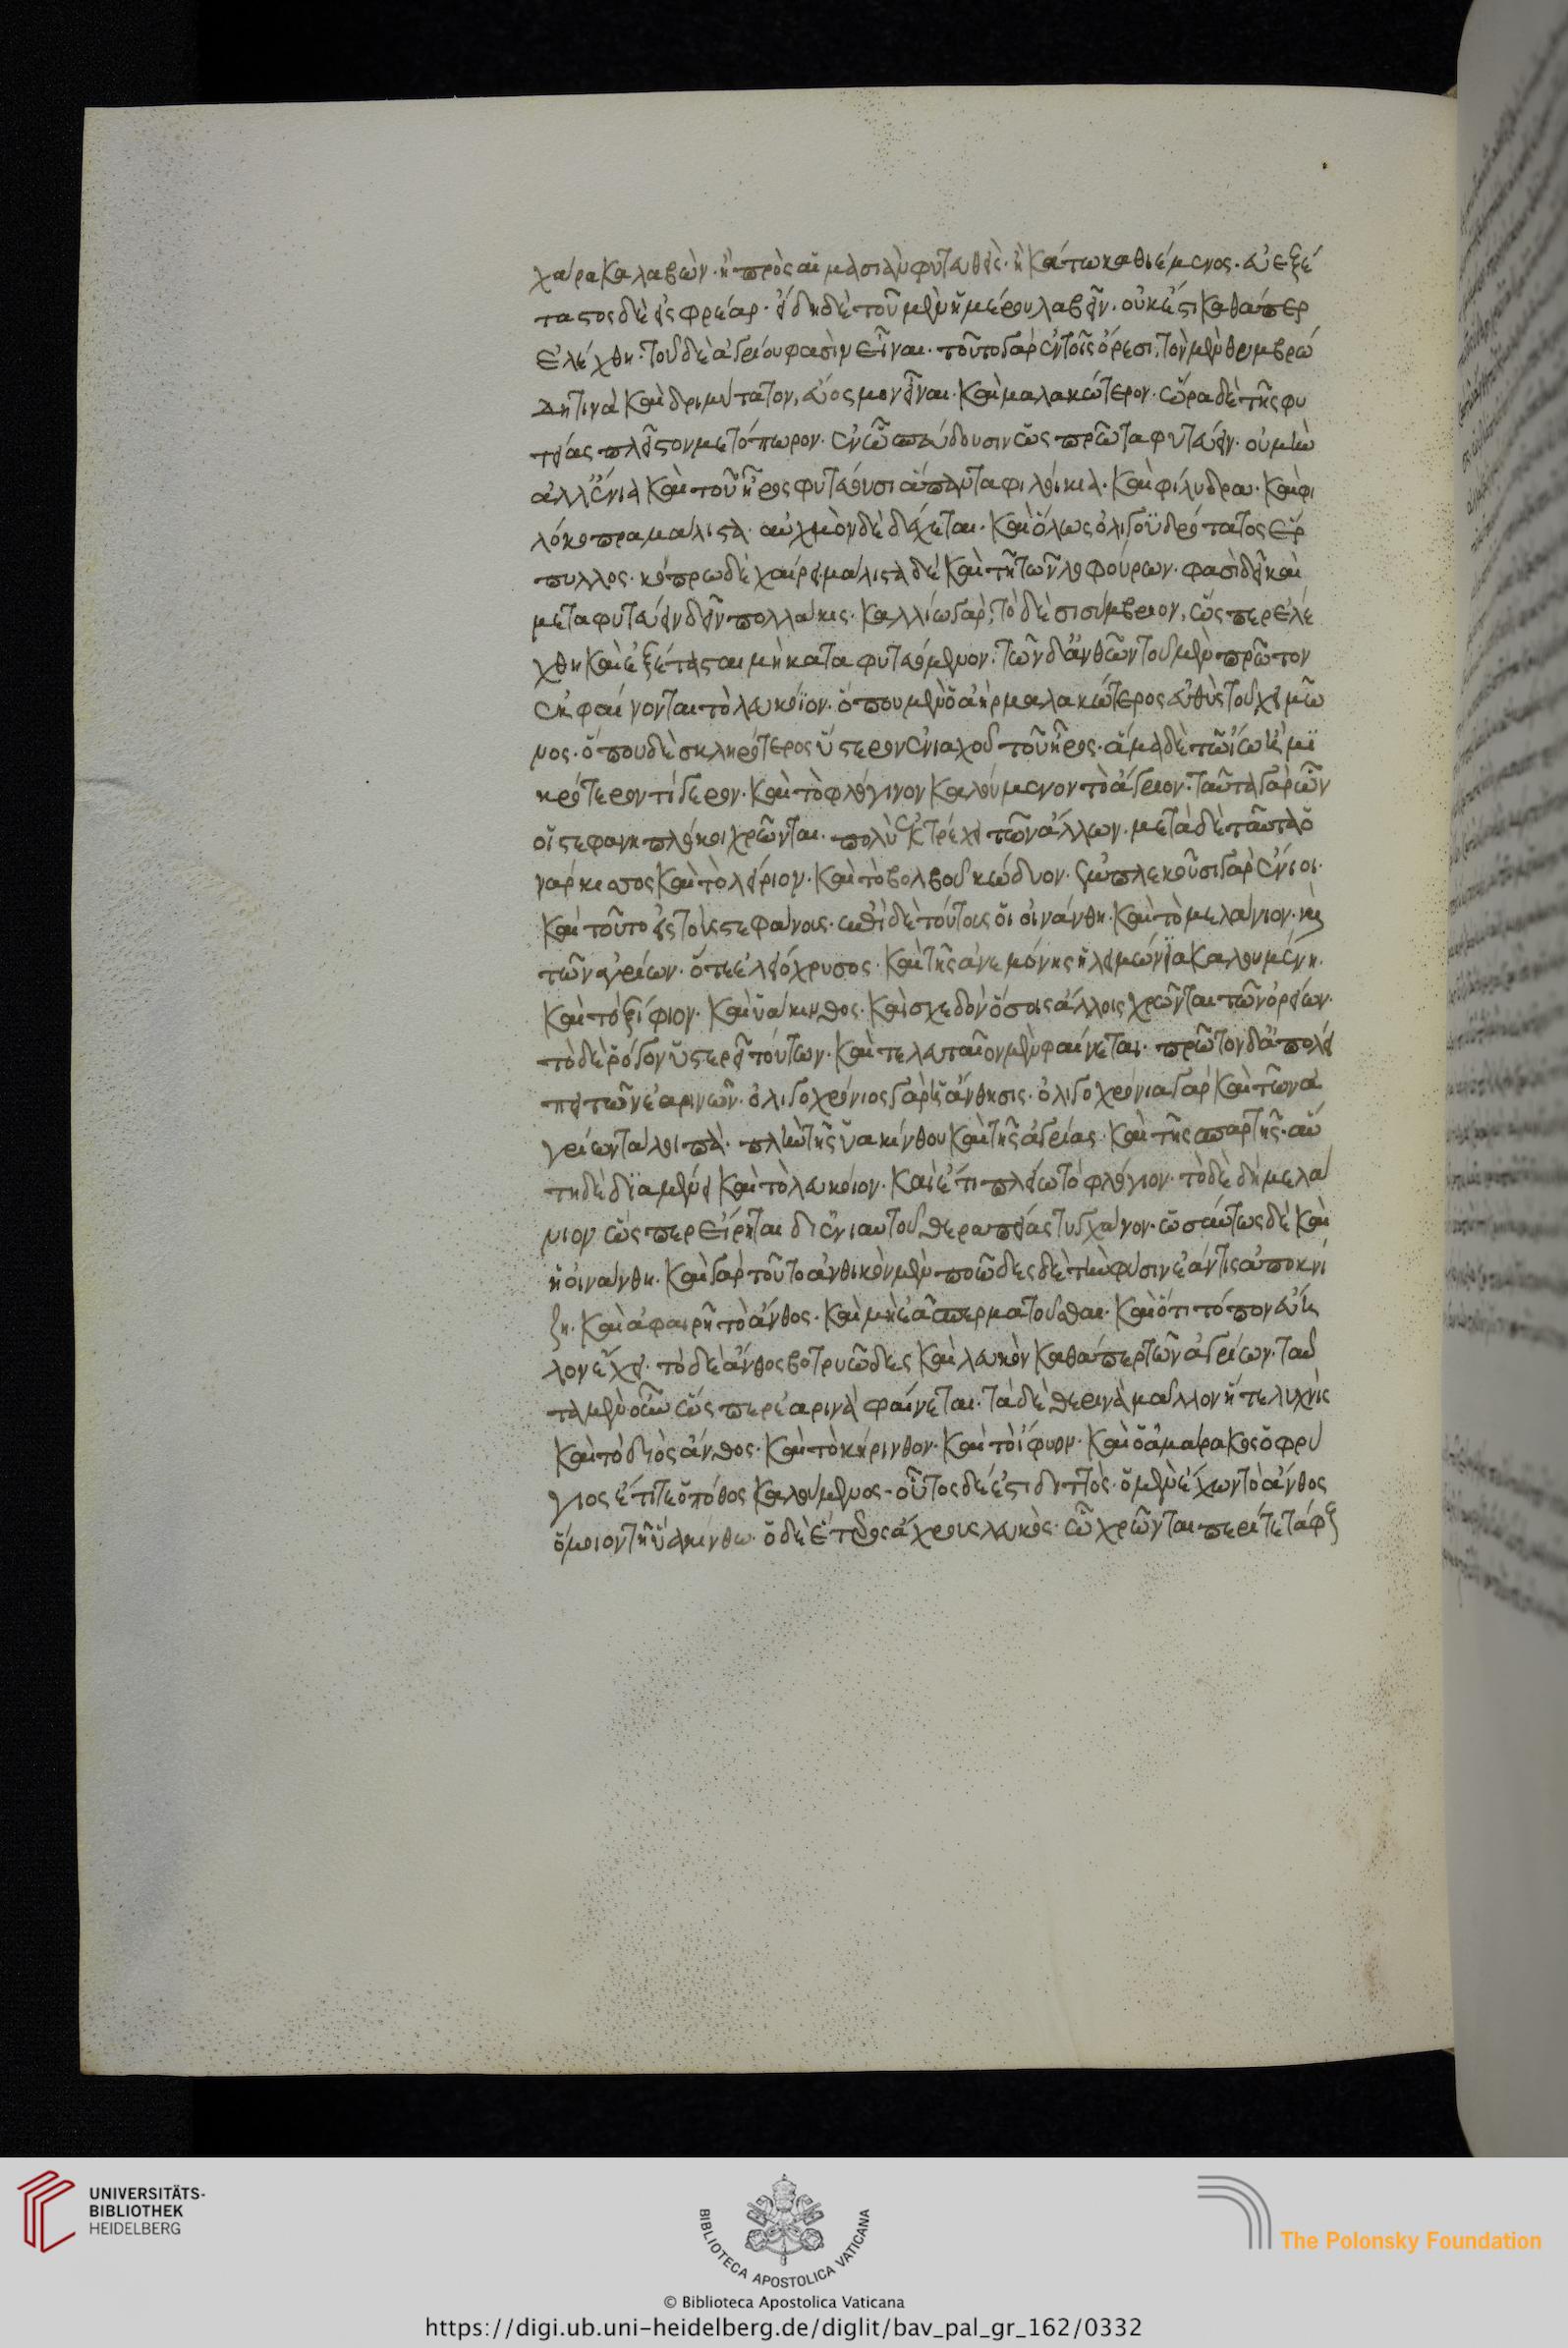 χάρακα λαβὼν. ἢ πρὸς αἱμασιὰν φυτευθεὶς. ἢ κάτω καθιέμενος. εὐεξέ
τατος δὲ εἰς φρέαρ. εἴδη δὲ τοῦ μὲν ἡμέρου λαβεῖν. οὐκ ἔστι καθάπερ
ἐλέχθη. τοῦ δὲ ἀγρίου φασὶν εἶναι. τοῦτο γὰρ ἐν τοῖς ὄρεσι, τὸν μὲν θυμβρώ
δη τινὰ καὶ δριμύτατον, εὔοσμον εἶναι. καὶ μαλακώτερον. ὥρα δὲ τῆς φυ
τείας πλεῖστον μετόπωρον. ἐν ᾧ σπεύδουσιν ὡς πρῶτα φυτεύειν. οὐ μὴν
ἀλλ' ἔνια καὶ τοῦ ἦρος φυτεύουσι ἅπαντα φιλόσκια. καὶ φίλυδρα. καὶ φι
λόκοπρα μάλιστα. αὐχμὸν δὲ δέχεται. καὶ ὅλως ὀλιγοϋδρότατος ἕρ
πυλλος. κόπρω δὲ χαίρει. μάλιστα δὲ καὶ τῆ τῶν λοφούρων. φασὶ δεῖ καὶ
μεταφυτεύειν δεῖν πολλάκις. καλλίω γὰρ, τὸ δὲ σισύμβριον, ὥσπερ ἐλέ
χθη καὶ ἐξέταται μὴ καταφυτευόμενον. τῶν δ' ἀνθῶν τοῦ μὲν πρῶτον
ἐκφαίνονται τὸ λευκόϊον. ὅπου μὲν ὁ ἀὴρ μαλακώτερος εὐθὺς τοῦ χειμῶ
νος. ὅπου δὲ σκληρότερος ὕστερον ἐνιαχοῦ τοῦ ἦρος. ἅμα δὲ τῶ ἴω ἢ μι
κρότερόν τι ὕστερον. καὶ τὸ φλόγινον καλούμενον τὸ ἄγριον. ταῦτα γὰρ ὧν
οἱ στεφανηπλόκοι χρῶνται. πολὺ ἐκτρέχει τῶν ἄλλων. μετὰ δὲ ταῦτα ὁ
νάρκισσος καὶ τὸ λείριον. καὶ τὸ βολβοῦ κώδυον. συμπλέκουσι γὰρ ἔνιοι.
καὶ τοῦτο εἰς τοὺς στεφάνους. ἐπὶ δὲ τούτοις οἱ οἰνάνθη. καὶ τὸ μελάνιον. καὶ
τῶν ἀγρίων. ὅ τε ἐλειόχρυσος. καὶ τῆς ἀνεμόνης ἡ λειμώνια καλουμένη.
καὶ τὸ ξίφιον. καὶ ὑάκινθος. καὶ σχεδὸν ὅσοις ἄλλοις χρῶνται τῶν ὀρείων.
τὸ δὲ ῥόδον ὑστερεῖ τούτων. καὶ τελευταῖον μὲν φαίνεται. πρῶτον δ' ἀπολεί
πει τῶν ἐαρινῶν. ὀλιγοχρόνιος γὰρ ἡ ἄνθησις. ὀλιγοχρόνια γὰρ καὶ τῶν ἀ
γρίων τὰ λοιπὰ. πλὴν τῆς ὑακίνθου καὶ τῆς ἀγρίας. καὶ τῆς σπαρτῆς. αὕ
τη δὲ διαμένει καὶ τὸ λευκόιον. καὶ ἔτι πλείω τὸ φλόγιον. τὸ δὲ δὴ μελά
νιον ὥσπερ εἴρηται δι' ἐνιαυτοῦ θεραπείας τυγχάνον. ὡσαύτως δὲ καὶ
ἡ οἰνάνθη. καὶ γὰρ τοῦτο ἀνθικὸν μὲν ποιῶδες δὲ τὴν φύσιν ἐάν τις ἀποκνί
ζη. καὶ ἀφαιρῆ τὸ ἄνθος. καὶ μὴ ἐᾶ σπερματοῦσθαι. καὶ ὅτι τόπον εὔει
λον ἔχει. τὸ δὲ ἄνθος βοτρυῶδες καὶ λευκὸν καθάπερ τῶν ἀγρίων. ταῦ
τα μὲν οὖν ὥσπερ ἐαρινὰ φαίνεται. τὰ δὲ θερινὰ μᾶλλον ἥ τε λυχνὶς
καὶ τὸ διὸς ἄνθος. καὶ τὸ κήρινθον. καὶ τὸ ἴφυον. καὶ ὁ ἀμάρακος ὁ φρύ
γιος ἔτι τε ὁ πόθος καλούμενος. οὗτος δέ ἐστι διττὸς. ὁ μὲν ἔχων τὸ ἄνθος
ὅμοιον τῆ ὑακίνθω. ὁ δὲ ἕτερος ἄχρους λευκὸς. ὧ χρῶνται περὶ τε τάφ
UNIVERSITÄTS-
BIBLIOTHEK
HEIDELBERG
BIBLIOTECA APOSTOLICA VATICANA
The Polonsky Foundation
© Biblioteca Apostolica Vaticana
https://digi.ub.uni-heidelberg.de/diglit/bav_pal_gr_162/0332